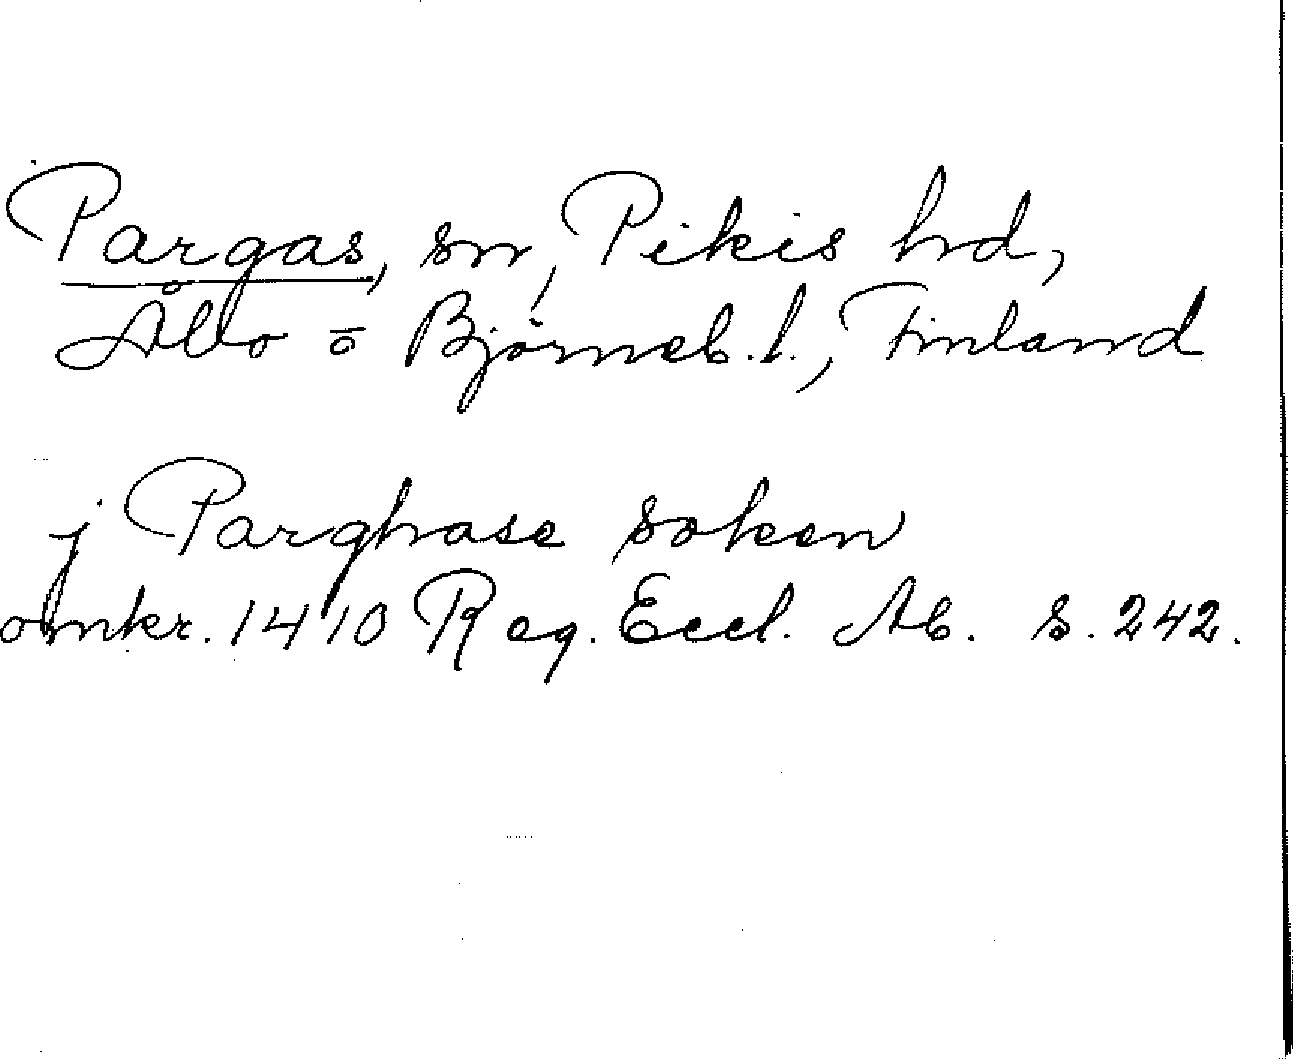 Pargas, sn, Pikis hd,
Åbo o Björneb. l., Finland
j Parghase soken
omkr. 1410 Reg. Eccl. Ab. s. 242.